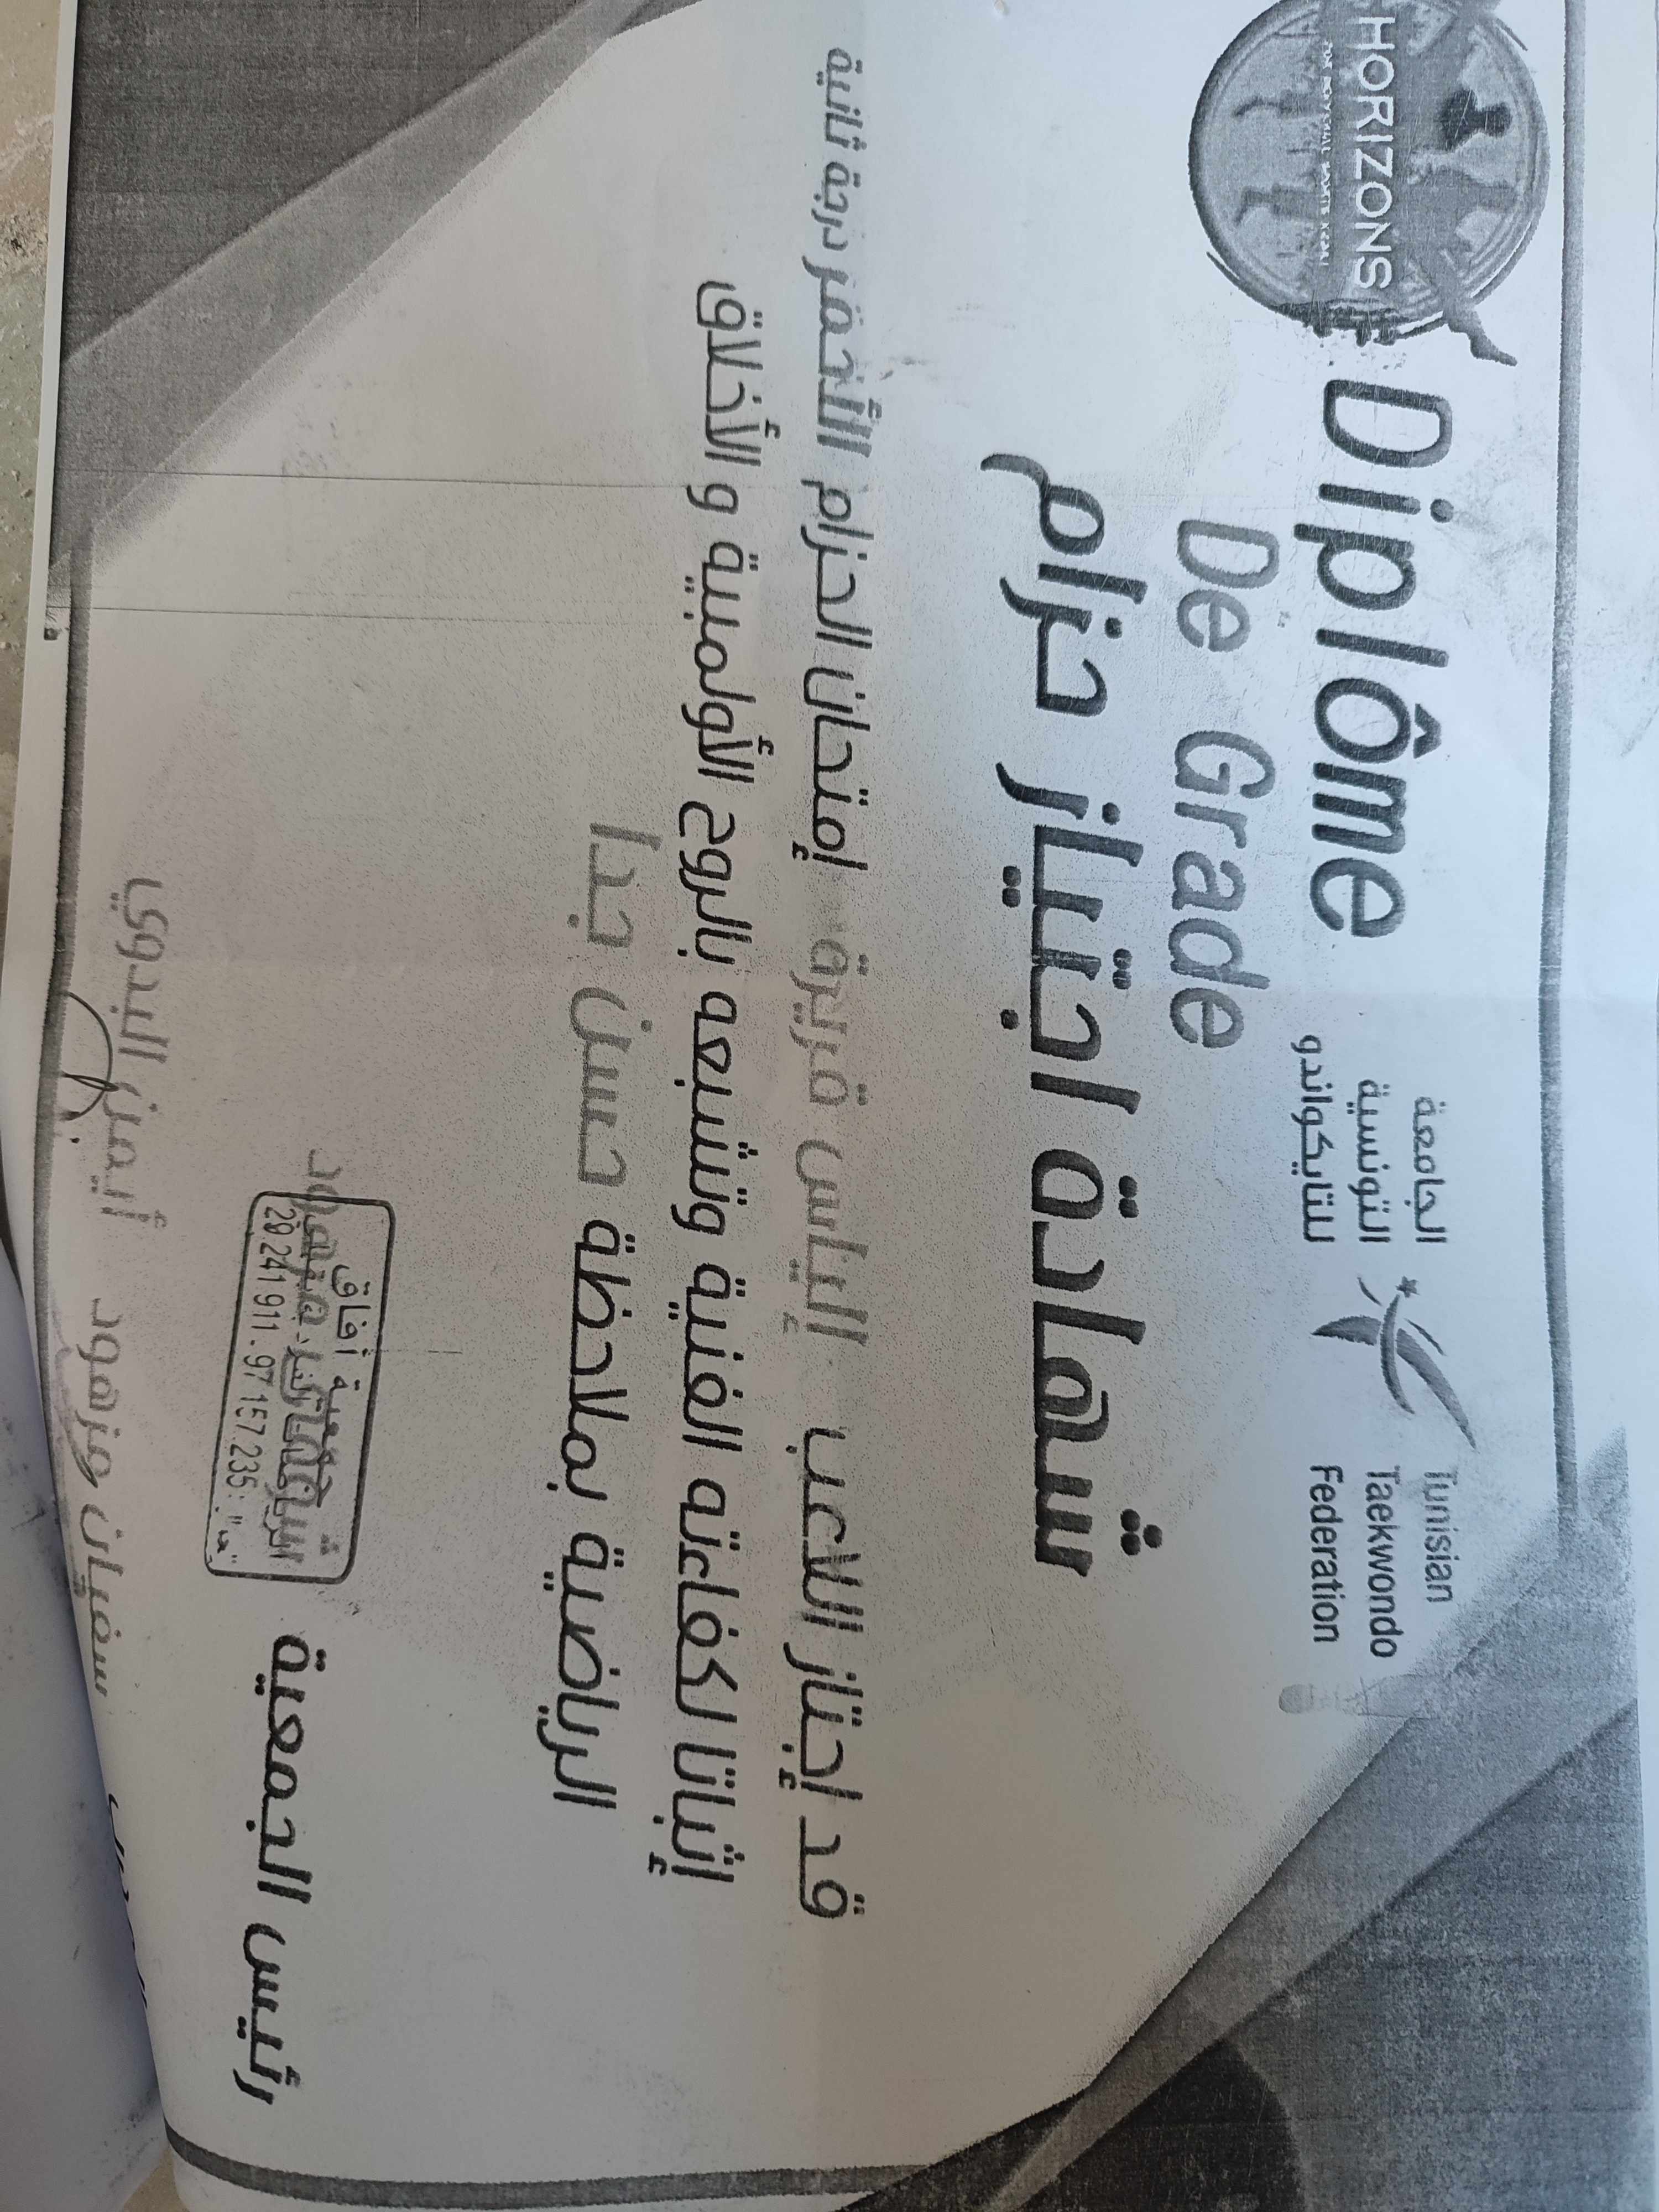 HORIZONS
Diplôme
De Grade
الجامعة
التونسية
للتايكواندو
Tunisian
Taekwondo
Federation
شهادة اجتياز حزام
قد إجتاز اللاعب إلياس قريرة إمتحان الحزام الأحمر درجة ثانية
إثباتا لكفاءته الفنية وتشبعه بالروح الأولمبية و الأخلاق
الرياضية بملاحظة حسن جدا
رئيس الجمعية
جمعية أفاق
29 241 911 - 97 157 235
سفيان مزهود
أيمن البدوي